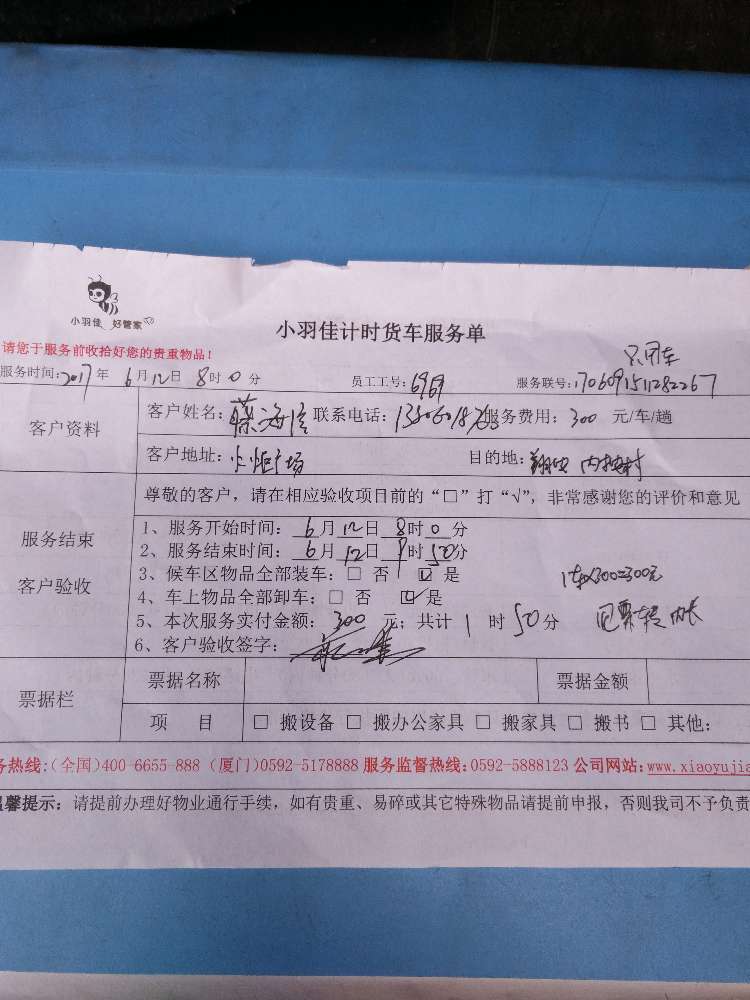 小羽佳 好管家
小羽佳计时货车服务单
只用车
请您于服务前收拾好您的贵重物品!
服务时间: 2017 年 6 月 12 日 8 时 0 分 员工工号: 6969 服务联号: 1706091511282267
客户资料
客户姓名: 海 联系电话: 服务费用: 300 元/车/趟
客户地址: 火炬广场 目的地: 翔安 村
服务结束
客户验收
尊敬的客户，请在相应验收项目前的“□”打“√”，非常感谢您的评价和意见
1、服务开始时间: 6 月 12 日 8 时 0 分
2、服务结束时间: 6 月 12 日 9 时 50 分
3、候车区物品全部装车: □ 否 ☑ 是
1车x300=300元
4、车上物品全部卸车: □ 否 ☑ 是
5、本次服务实付金额: 300 元; 共计 1 时 50 分
6、客户验收签字:
票据栏
票据名称 票据金额
项 目 □ 搬设备 □ 搬办公家具 □ 搬家具 □ 搬书 □ 其他:
务热线:(全国)400-6655-888 (厦门)0592-5178888 服务监督热线:0592-5888123 公司网站:www.xiaoyujia
温馨提示: 请提前办理好物业通行手续，如有贵重、易碎或其它特殊物品请提前申报，否则我司不予负责